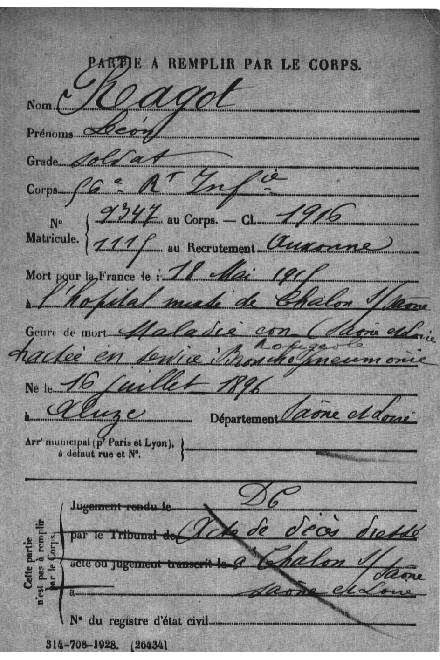 PARTIE A REMPLIR PAR LE CORPS.
Nom Ragot
Prénoms Léon
Grade soldat
Corps 56e Rt Infie
N° Matricule. { 9347 au Corps. — Cl. 1916
1115 au Recrutement Auxonne
Mort pour la France le : 18 Mai 1915
à l'hopital mixte de Chalon s/Saone
Genre de mort Maladie con Saone et Loire
tractée en service : Broncho pneumonie
Né le 16 juillet 1896
à Aluze Département Saône et Loire
Arrt municipal (pr Paris et Lyon),
à défaut rue et N°.
Cette partie n'est pas à remplir par le Corps.
Jugement rendu le DC
par le Tribunal de Acte de décès dressé
acte ou jugement transcrit le à Chalon s/Saône
à Saône et Loire
N° du registre d'état civil
314-708-1928. [26434]